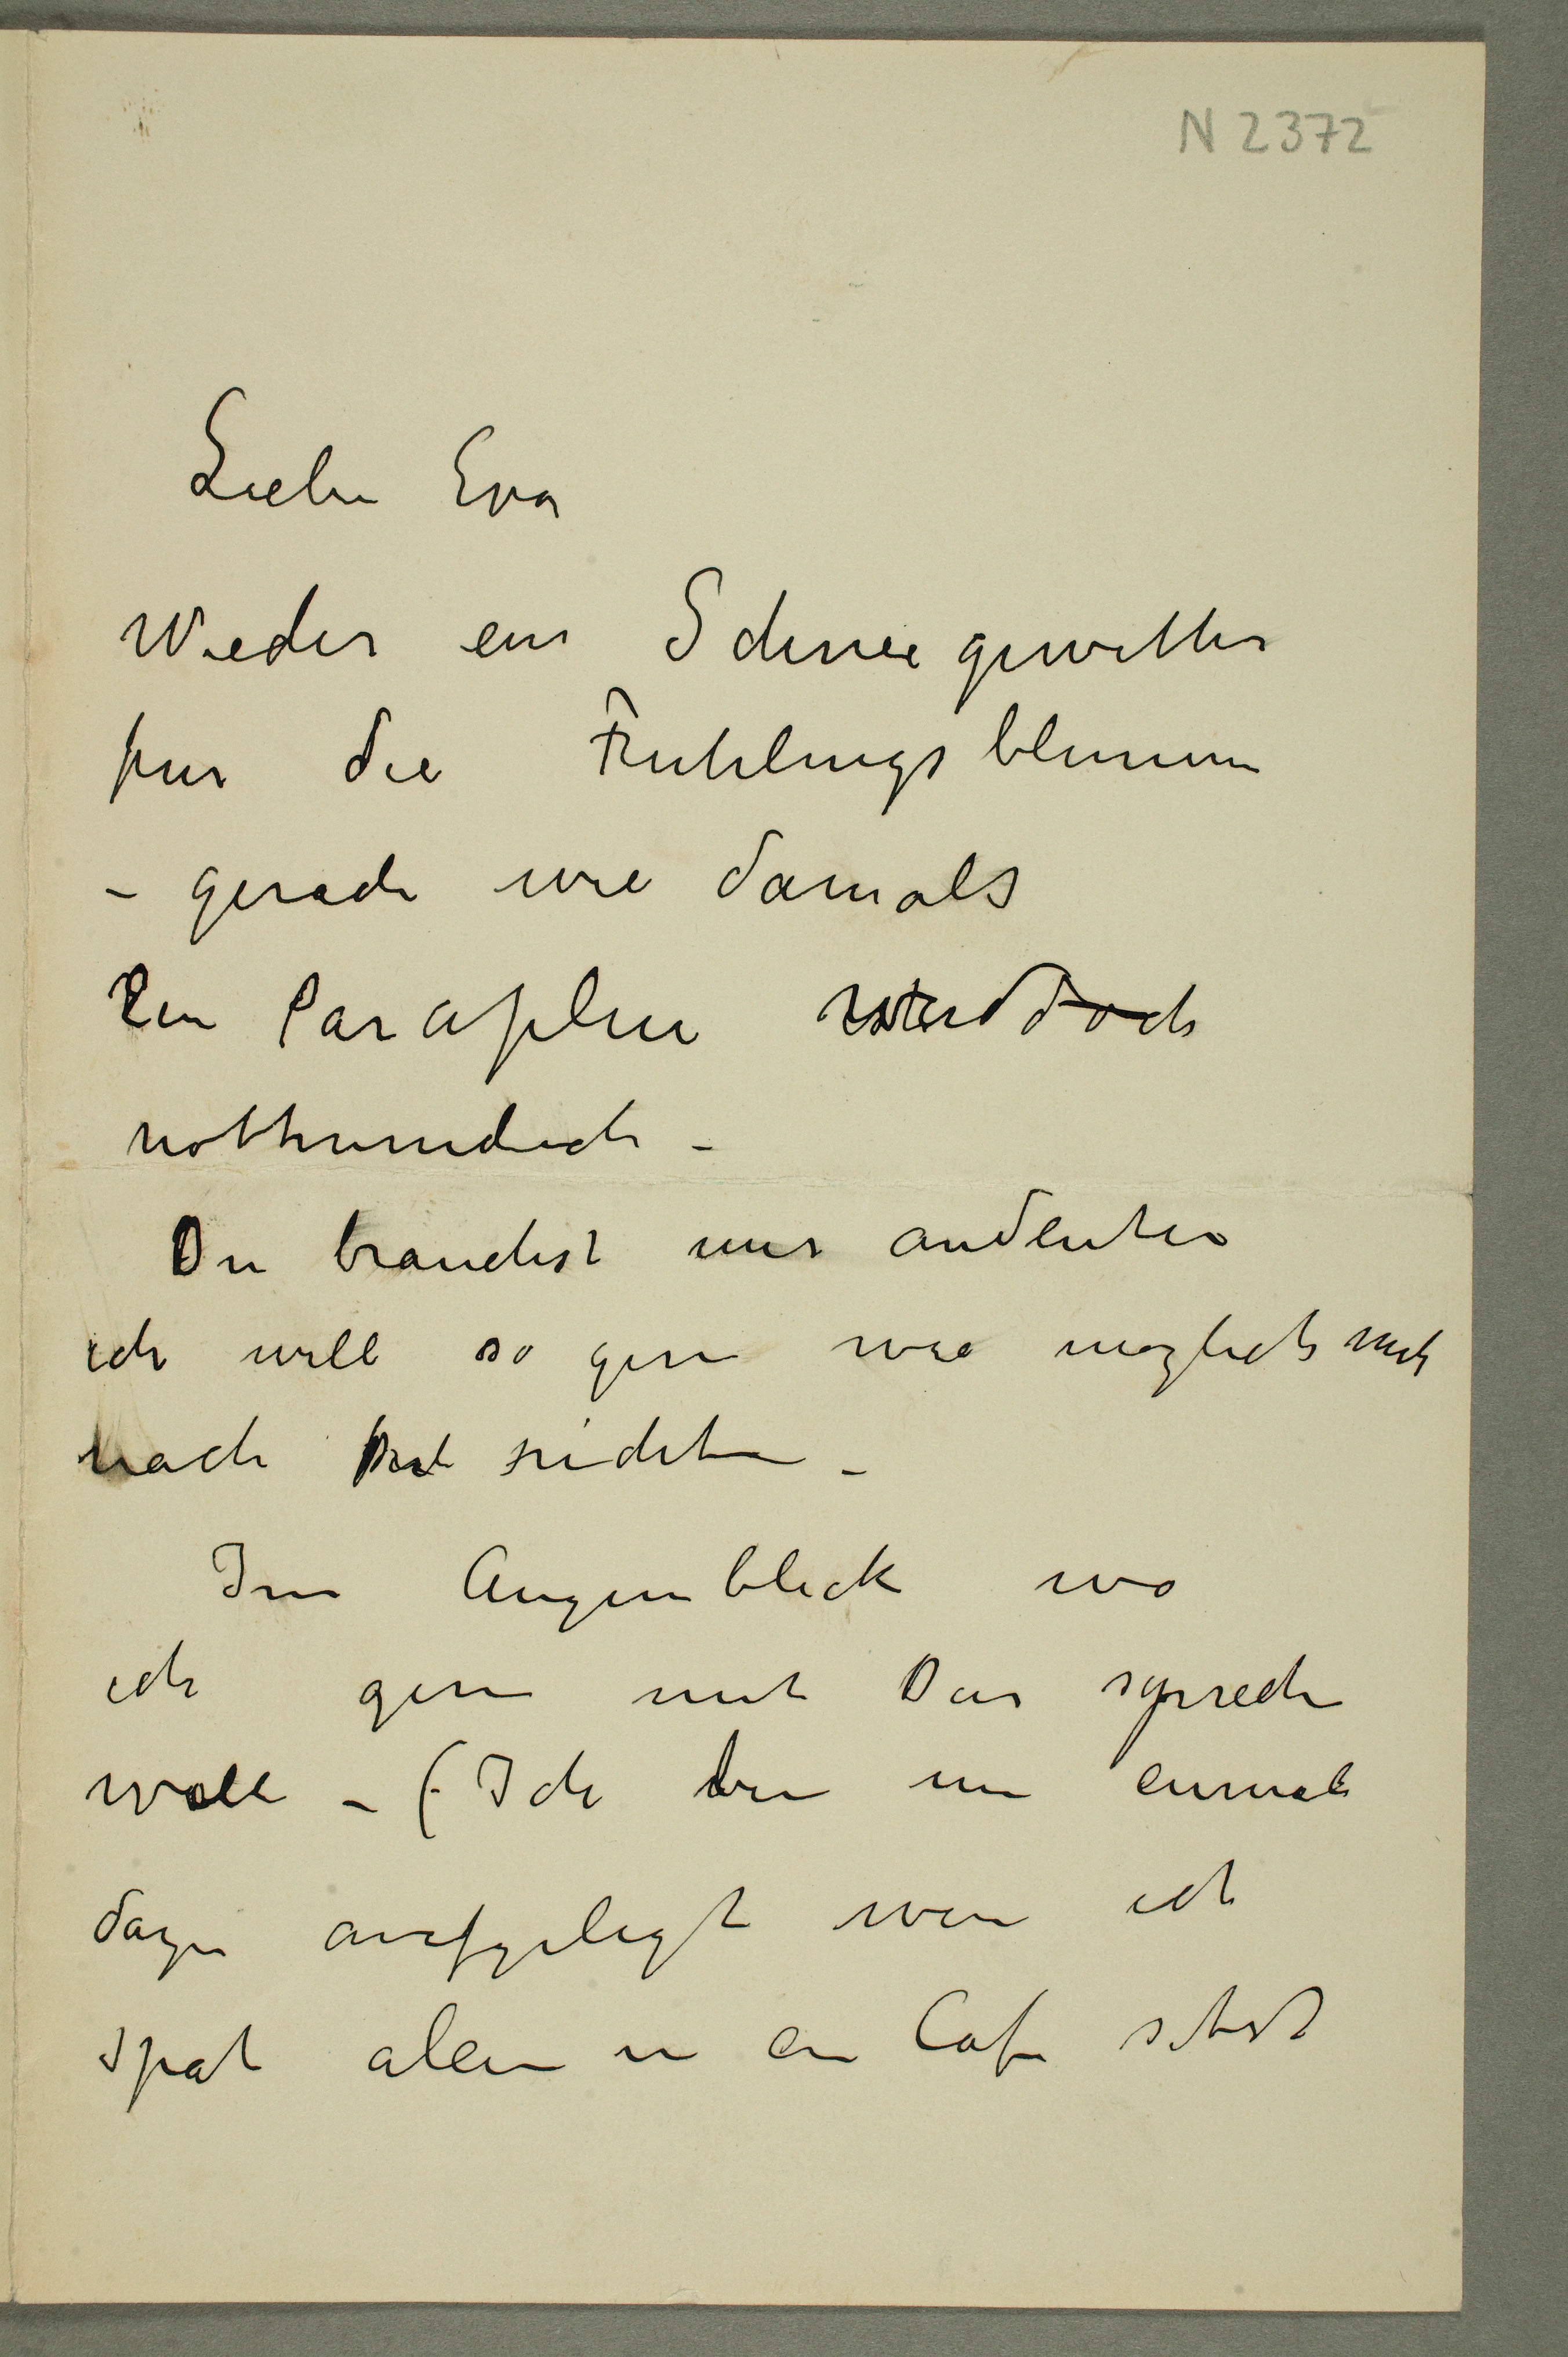 N 2372
Liebe Eva
Wieder ein Schneegewitter
fur die Fruhlingsblumen
– gerade wie damals
Ein Paraplui doch
nothwendich –
Du brauchst nur andeuten
ich will so gern wie moglich mich
nach richten –
Im Augenblick wo
ich gern mit Dir sprechen
will – (Ich bin nun einmal
dazu aufgelegt wen ich
spat allein in en Cafe